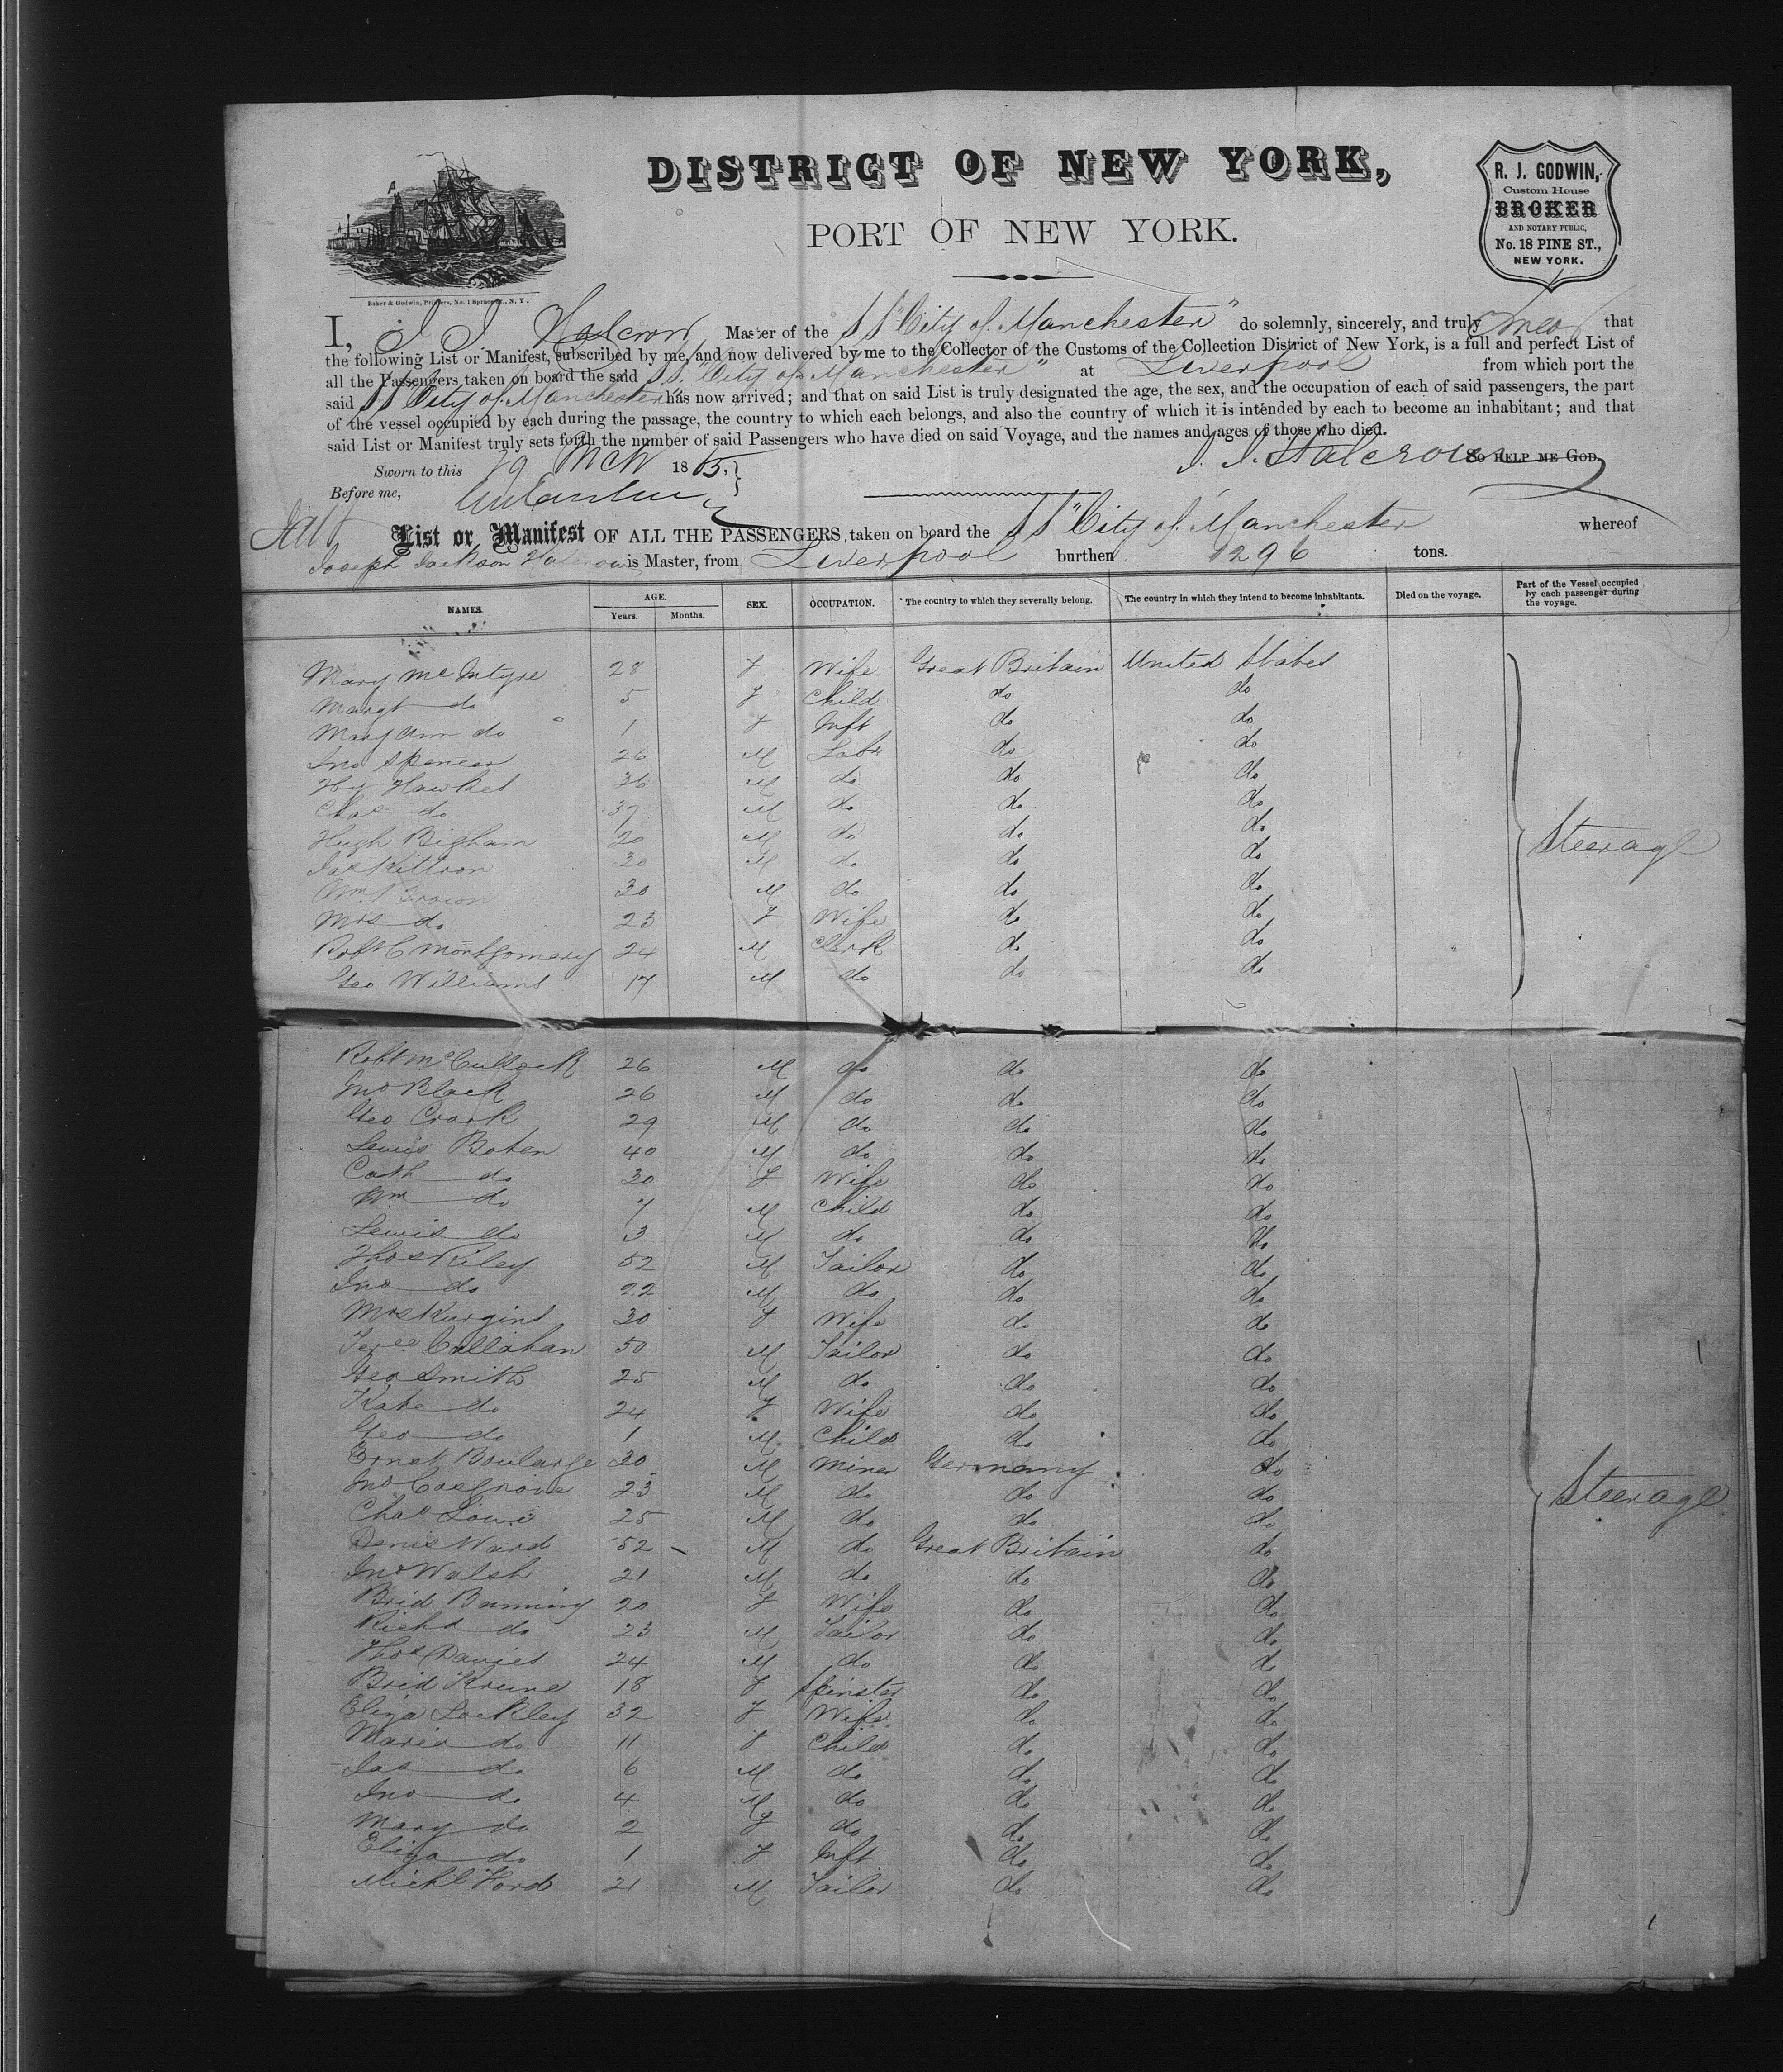 DISTRICT OF NEW YORK,
PORT OF NEW YORK.
R. J. GODWIN,
Custom House
BROKER
AND NOTARY PUBLIC,
No. 18 PINE ST.,
NEW YORK.
Baker & Godwin, Printers, No. 1 Spruce St., N. Y.
I, J J Halcrow Master of the SS "City of Manchester" do solemnly, sincerely, and truly swear that
the following List or Manifest, subscribed by me, and now delivered by me to the Collector of the Customs of the Collection District of New York, is a full and perfect List of
all the Passengers taken on board the said SS. "City of Manchester" at Liverpool from which port the
said SS City of Manchester has now arrived; and that on said List is truly designated the age, the sex, and the occupation of each of said passengers, the part
of the vessel occupied by each during the passage, the country to which each belongs, and also the country of which it is intended by each to become an inhabitant; and that
said List or Manifest truly sets forth the number of said Passengers who have died on said Voyage, and the names and ages of those who died.
J. J. Halcrow So HELP ME GOD.
Sworn to this 29 Mch 1865.
Before me,
List or Manifest OF ALL THE PASSENGERS taken on board the SS "City of Manchester whereof
Joseph Jackson Halcrow is Master, from Liverpool burthen 1296 tons.
NAMES. AGE. Years. Months. SEX. OCCUPATION. The country to which they severally belong. The country in which they intend to become inhabitants. Died on the voyage. Part of the Vessel occupied by each passenger during the voyage.
Mary McIntyre 28 F Wife Great Britain United States
Margt do 5 F Child do do
Mary Ann do 1 F Inft do do
Jno Spencer 26 M Labr do do
Hy Hawkes 36 M do do do
Chas do 37 M do do do
Hugh Bigham 20 M do do do
Steerage
Jas Kittson 30 M do do do
Wm Brown 30 M do do do
Mrs do 23 F Wife do do
Robt C Montgomery 24 M Clerk do do
Geo Williams 17 M do do do
Robt McCullock 26 M do do do
Jno Black 26 M do do do
Geo Crark 29 M do do do
Lewis Boten 40 M do do do
Cath do 30 F Wife do do
Wm do 7 M Child do do
Lewis do 3 M do do do
Thos Riley 52 M Tailor do do
Jno do 22 M do do do
Mrs 30 F Wife do do
Callahan 50 M Tailor do do
Geo Smith 25 M do do do
Kate do 24 F Wife do do
Geo do 1 M Child do do
Ernst Boularge 30 M Miner Germany do
Jno Cosgrove 23 M do do do
Steerage
Chas Lowe 25 M do do do
Denis Ward 52 M do Great Britain do
Jno Walsh 21 M do do do
Brid Banning 20 F Wife do do
Richd do 23 M Tailor do do
Thos Davies 24 M do do do
Brid Krune 18 F Spinster do do
Eliza Lockley 32 F Wife do do
Maria do 11 F Child do do
Jas do 6 M do do do
Jno do 4 M do do do
Mary do 2 F do do do
Eliza do 1 F Inft do do
Michl Ford 21 M Tailor do do